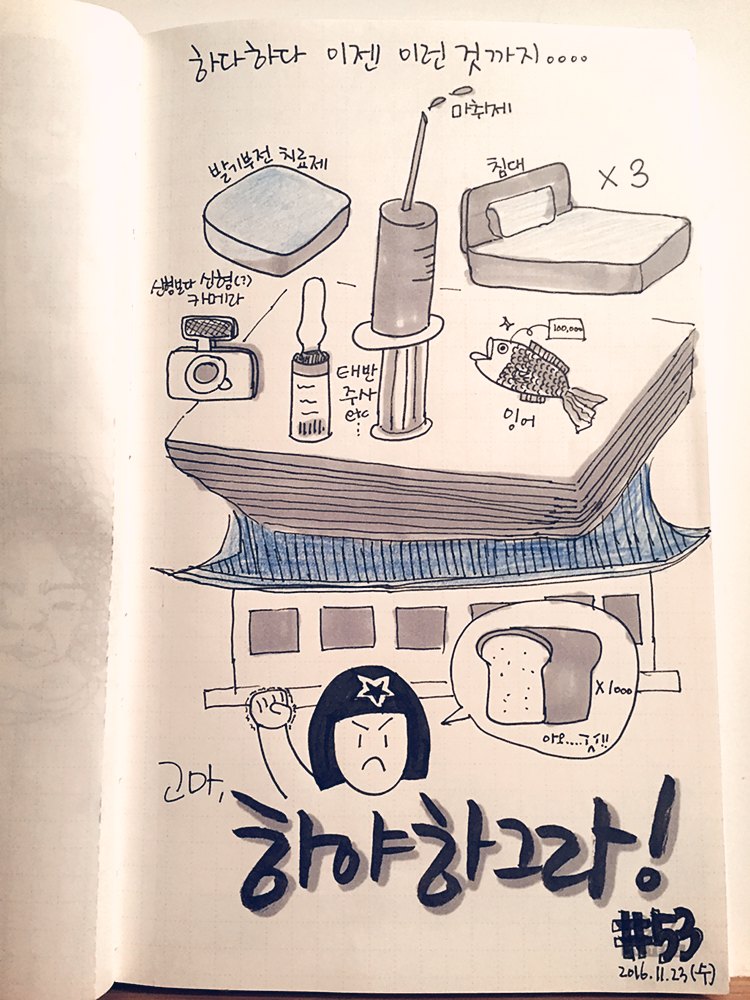 하다하다 이젠 이런 것까지....
마취제
발기부전 치료제
침대
X 3
신병보다 신형(?)
카메라
100,000
태반
주사
etc
⋮
잉어
X 1000
아오....
고마,
하야하그라!
#53
2016.11.23(수)